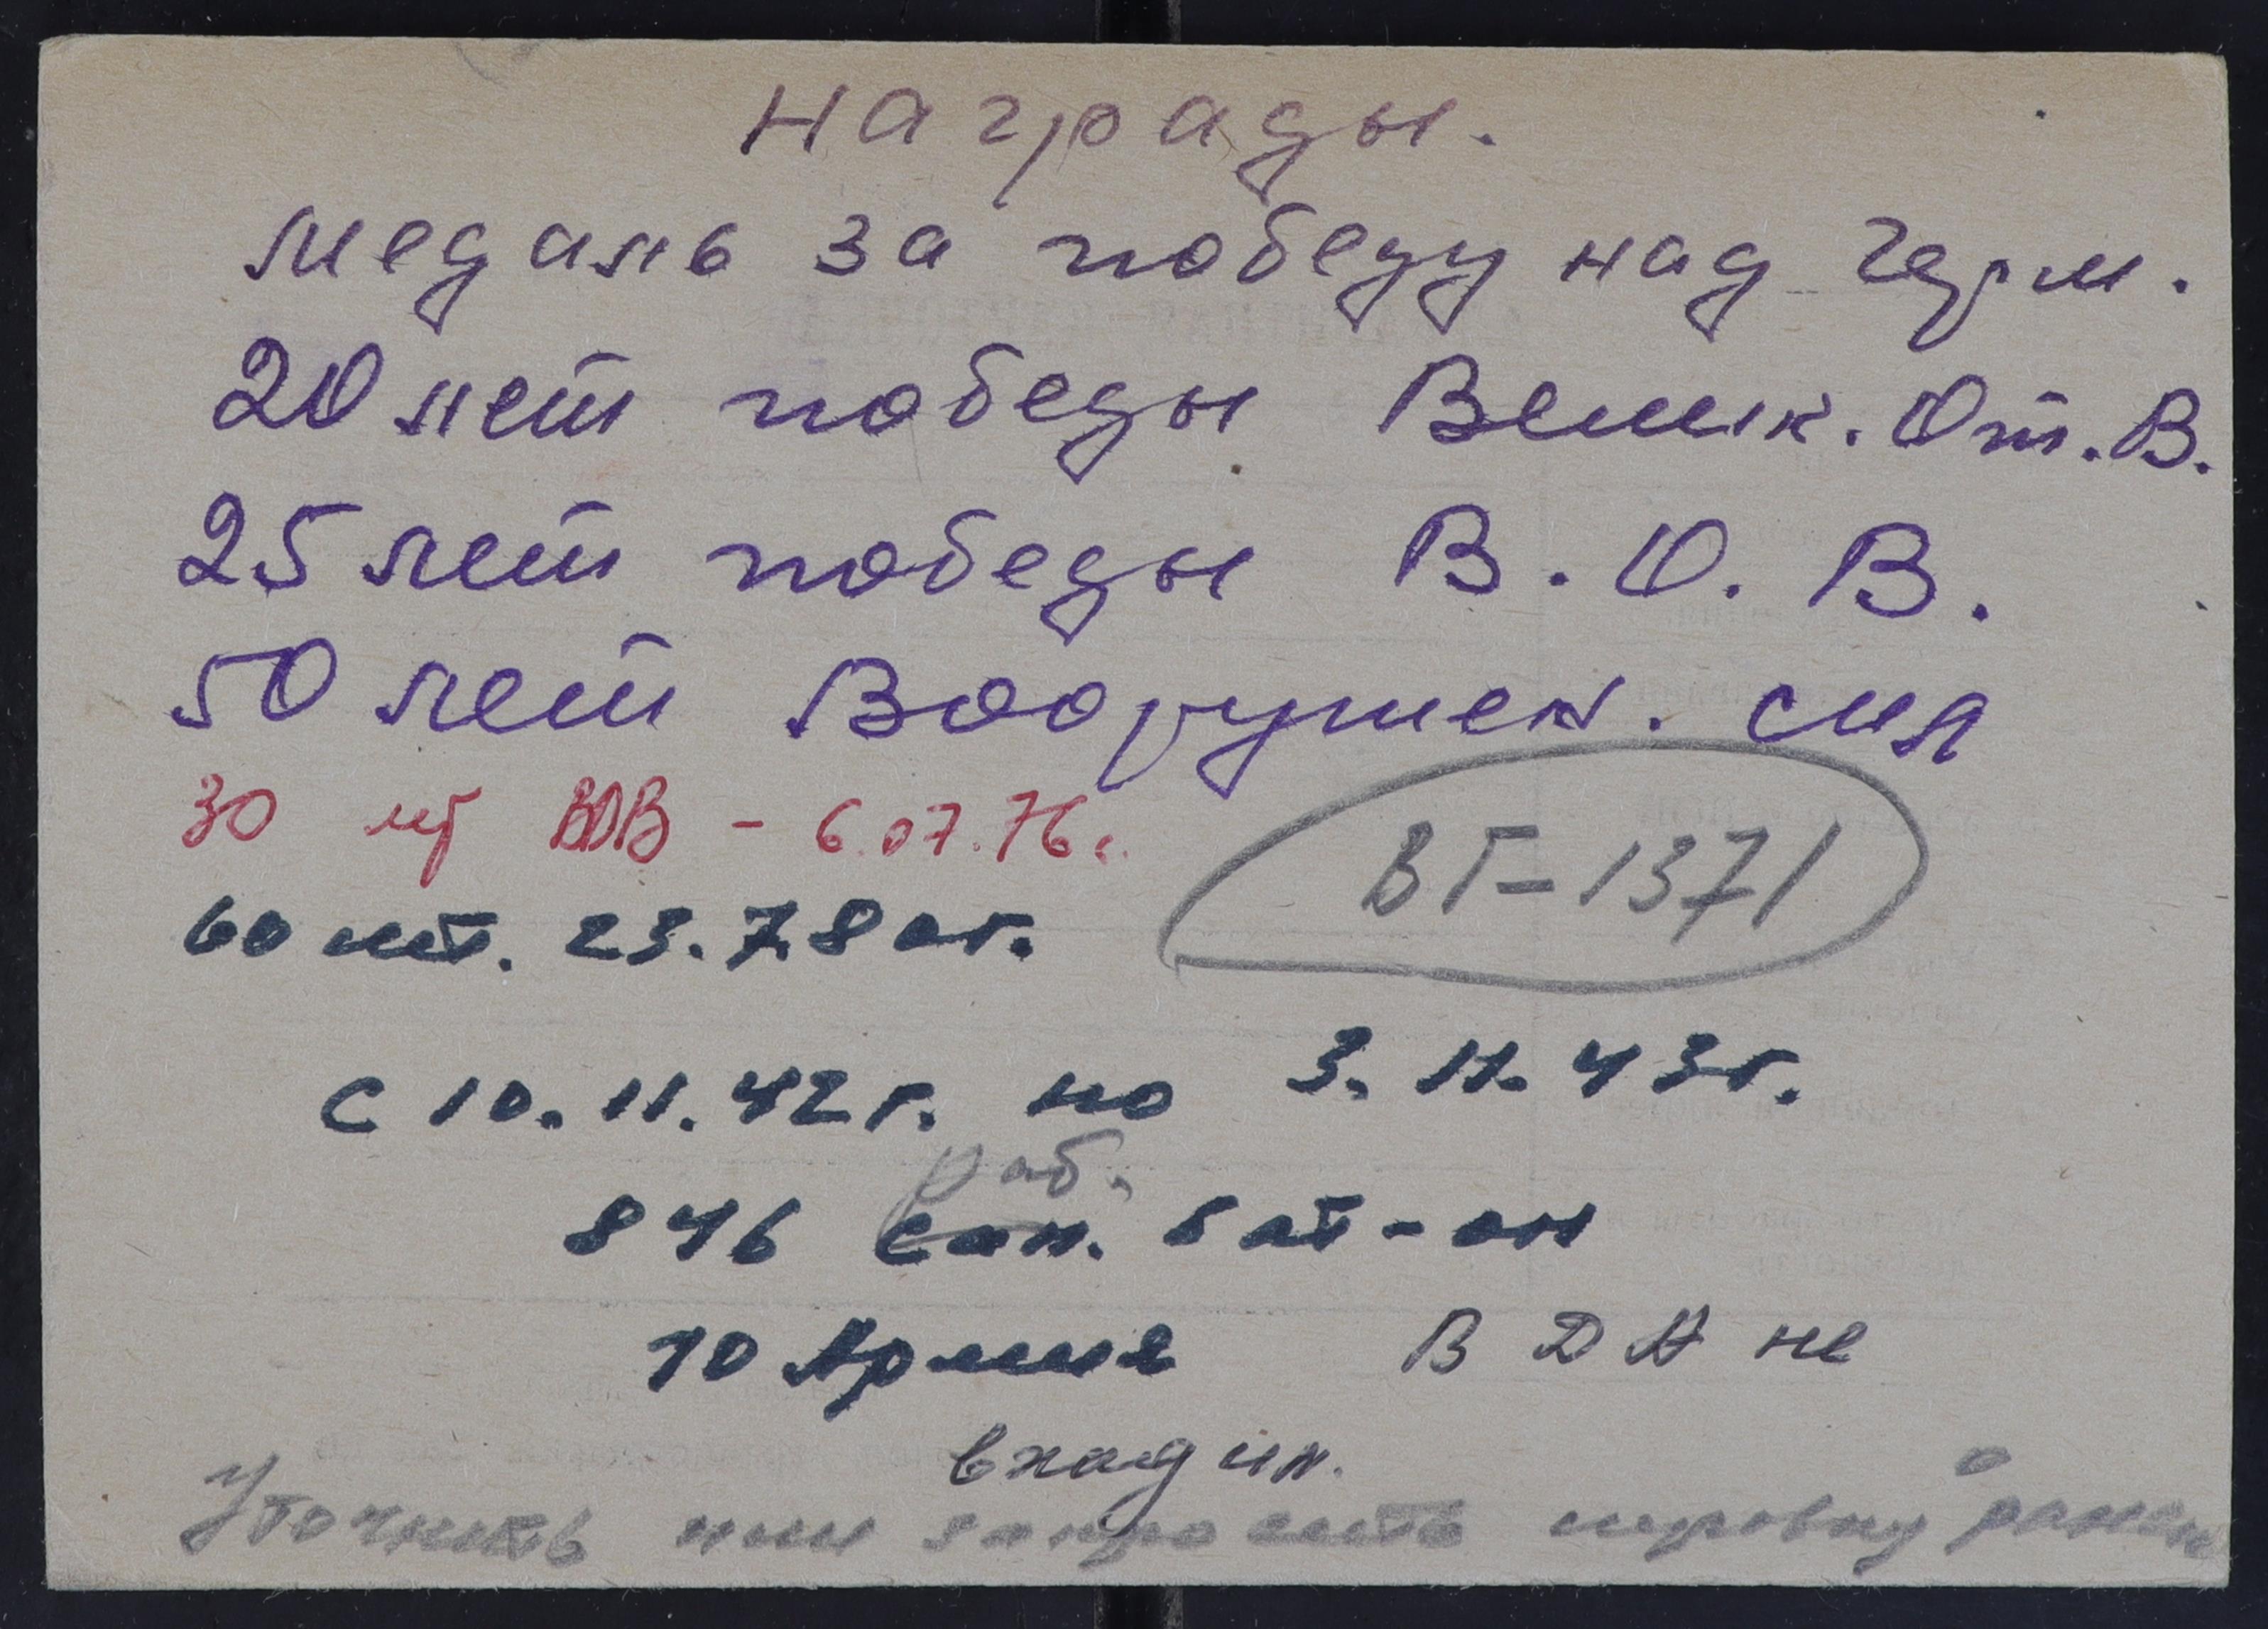 Награды.
медаль за победу над Герм.
20 лет победы Велик. От. В.
25 лет победы В. О. В.
50 лет Вооружен. сил
30 лет ВОВ - 6.07.76г.
ВГ-1371
60 лет. 23.7.80г.
с 10.11.42г. по 3.11.43г.
раб.
846 сап. бат-он
10 Армия В ДА не
входил.
Уточнить или запросить справку о ранен